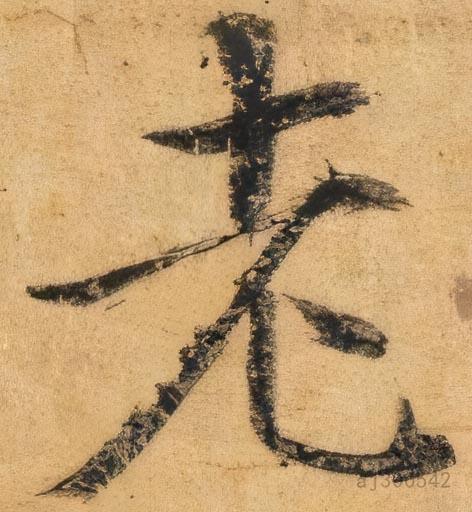 老
aj300542